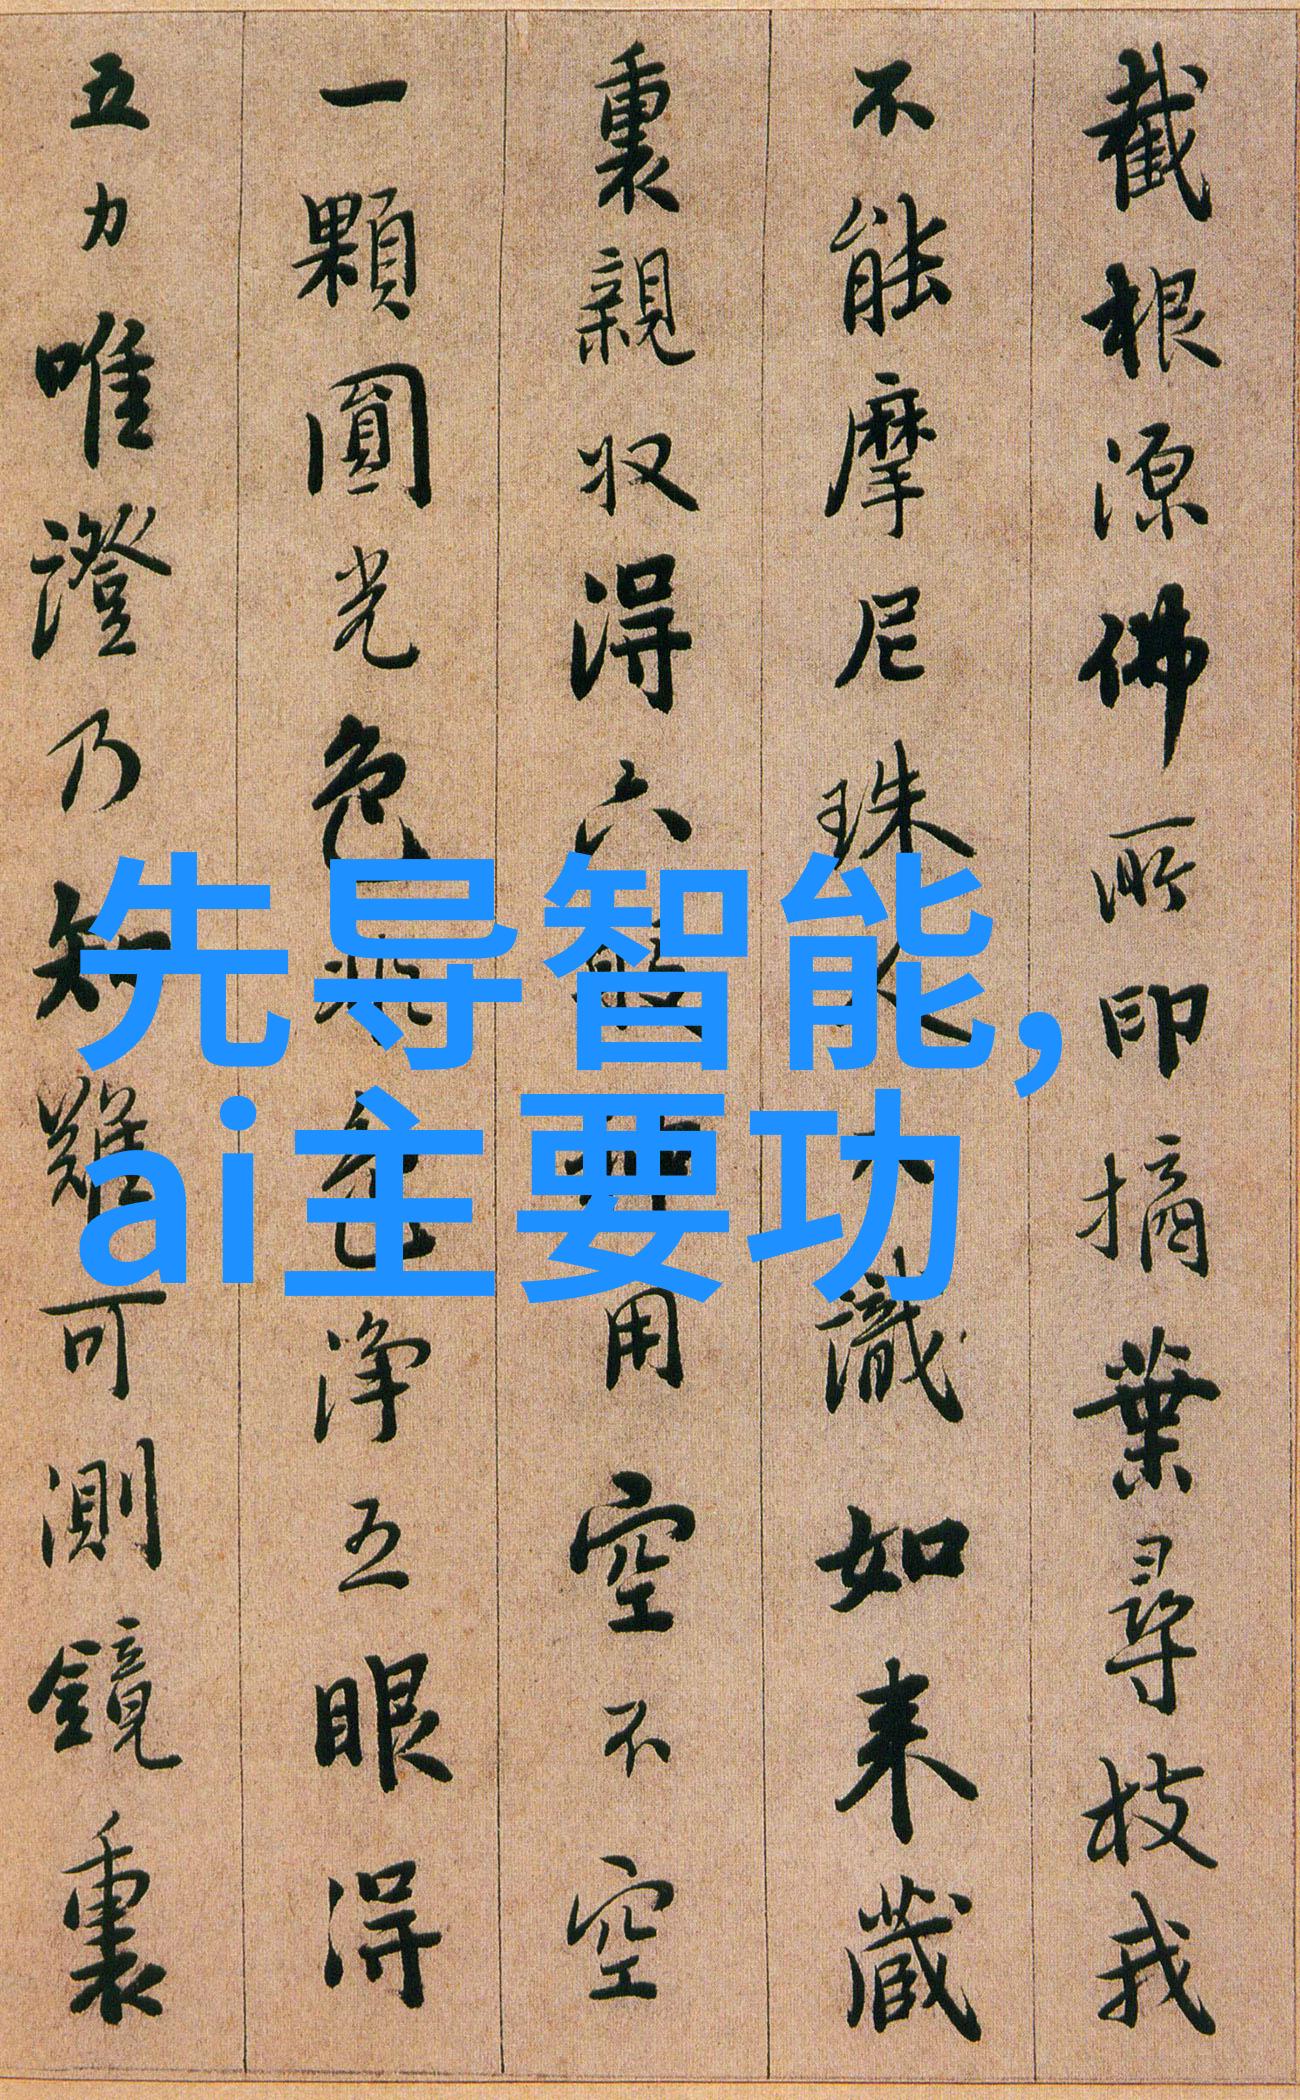 截根源佛所印摘葉尋枝我
不能摩尼珠人識如来藏
裏親収得六般用空不空
一顆圓光色非色淨五眼得
五力唯證乃知難可測鏡裏
先导智能,
ai主要功